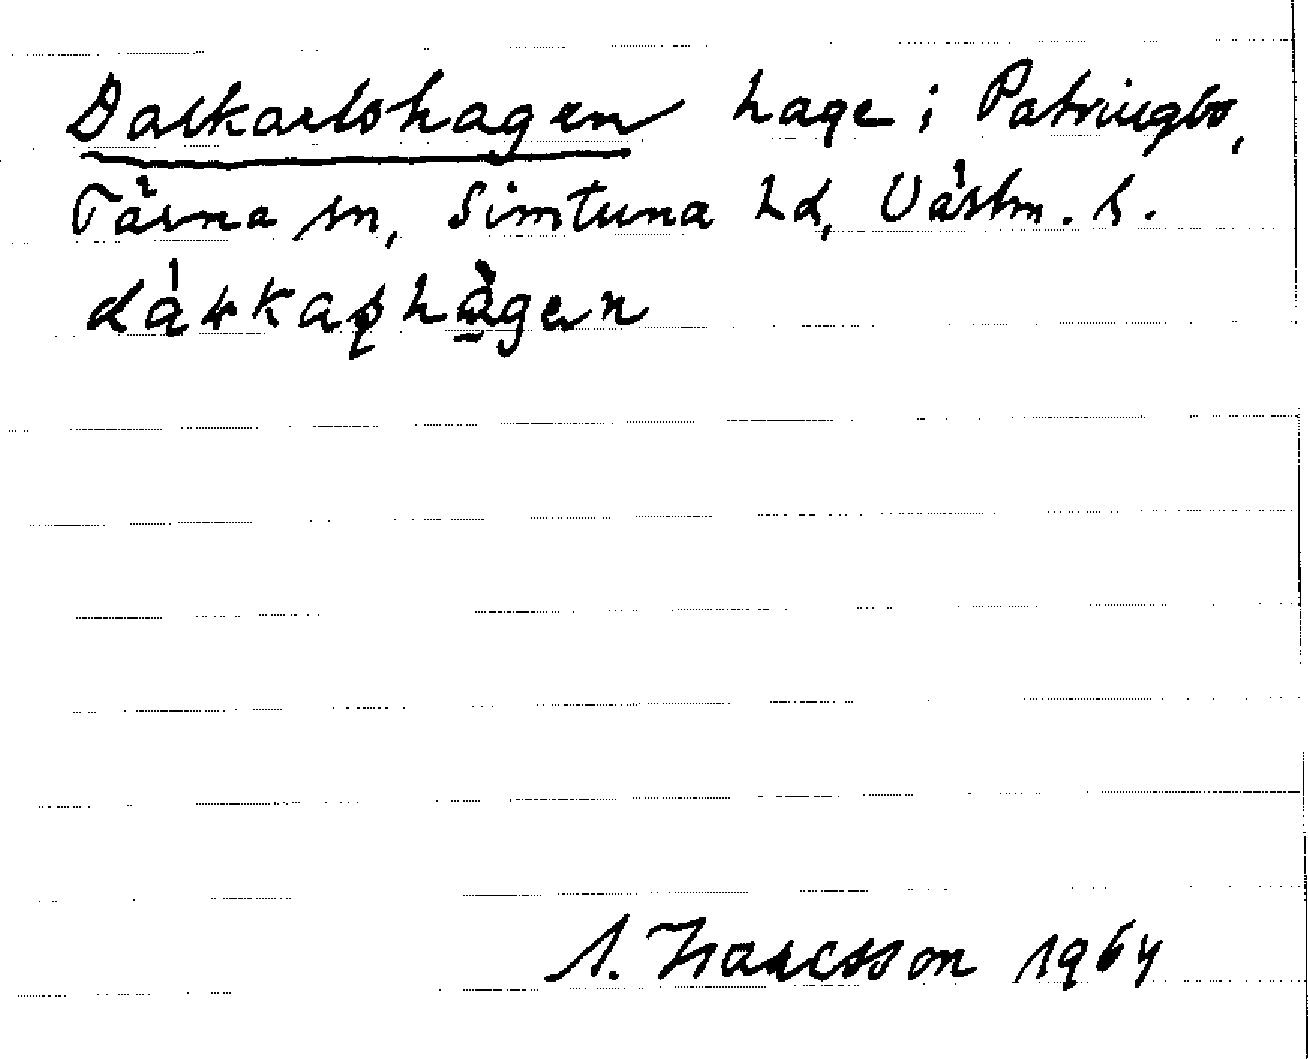 Dalkarlshagen hage i Patringbo,
Tärna sn, Simtuna hd, Västm. l.
A. Isaacsson 1964